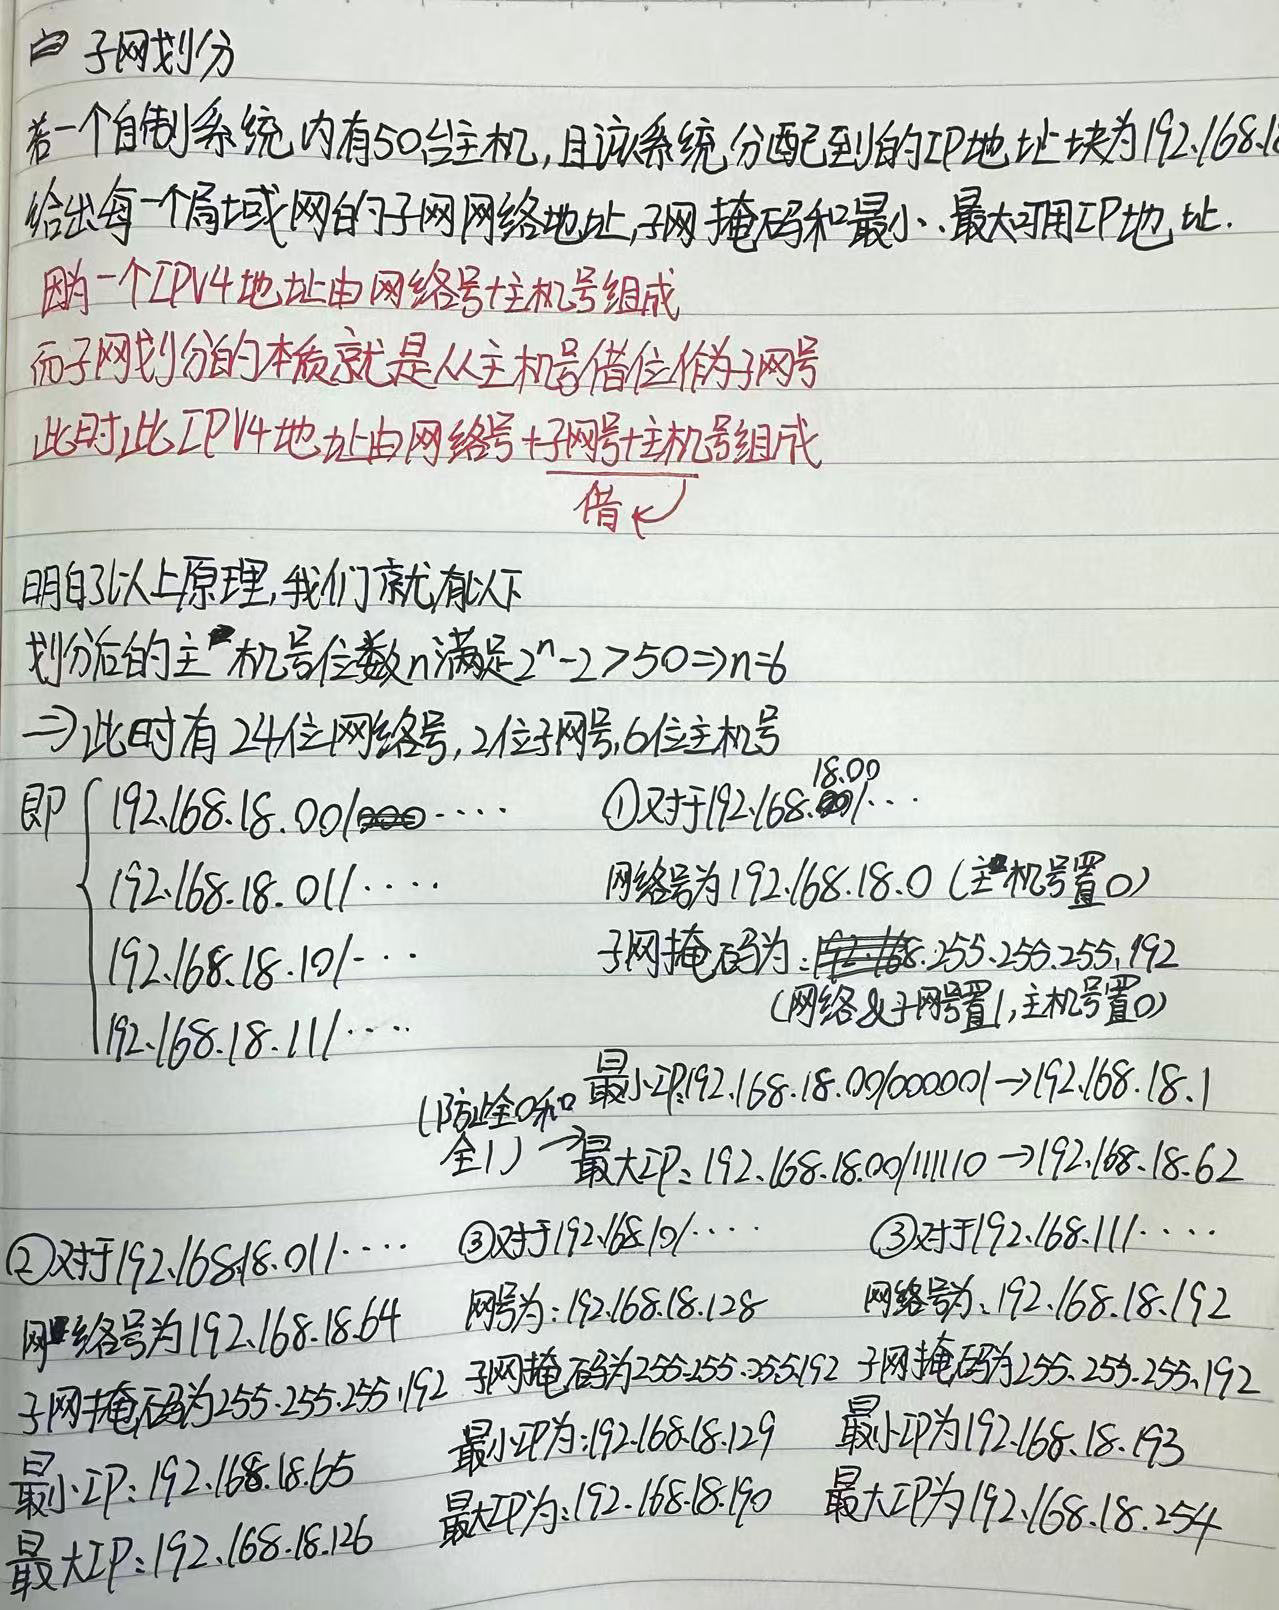 子网划分
若一个自制系统内有50台主机,且该系统分配到的IP地址块为192.168.18
给出每一个局域网的子网网络地址,子网掩码和最小、最大可用IP地址.
因为一个IPV4地址由网络号+主机号组成
而子网划分的本质就是从主机号借位作为子网号
此时此IPV4地址由网络号+子网号+主机号组成
借
明白了以上原理,我们就有以下
划分后的主机号位数n满足2ⁿ-2>50⇒n=6
⇒此时有24位网络号,2位子网号,6位主机号
即 192.168.18.00/····
192.168.18.01/····
192.168.18.10/···
192.168.18.11/····
①对于192.168.18.00/···
网络号为192.168.18.0(主机号置0)
子网掩码为:255.255.255.192
(网络&子网号置1,主机号置0)
最小IP:192.168.18.00/000001→192.168.18.1
(防止全0和全1)→最大IP:192.168.18.00/111110→192.168.18.62
②对于192.168.18.01/····
网络号为192.168.18.64
子网掩码为255.255.255.192
最小IP:192.168.18.65
最大IP:192.168.18.126
③对于192.168.10/····
网号为:192.168.18.128
子网掩码为255.255.255.192
最小IP为:192.168.18.129
最大IP为:192.168.18.190
③对于192.168.11/····
网络号为:192.168.18.192
子网掩码为255.255.255.192
最小IP为192.168.18.193
最大IP为192.168.18.254